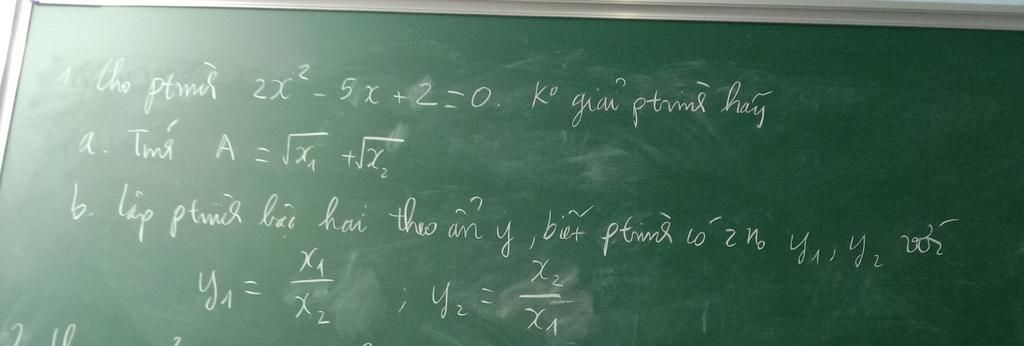 1. Cho ptrình 2x² - 5x + 2 = 0. Kº giải ptrình hãy
a. Tính A = √x₁ + √x₂
b. Lập ptrình bậc hai theo ẩn y, biết ptrình có 2 no y₁, y₂ với
y₁ = x₁/x₂ ; y₂ = x₂/x₁
2.